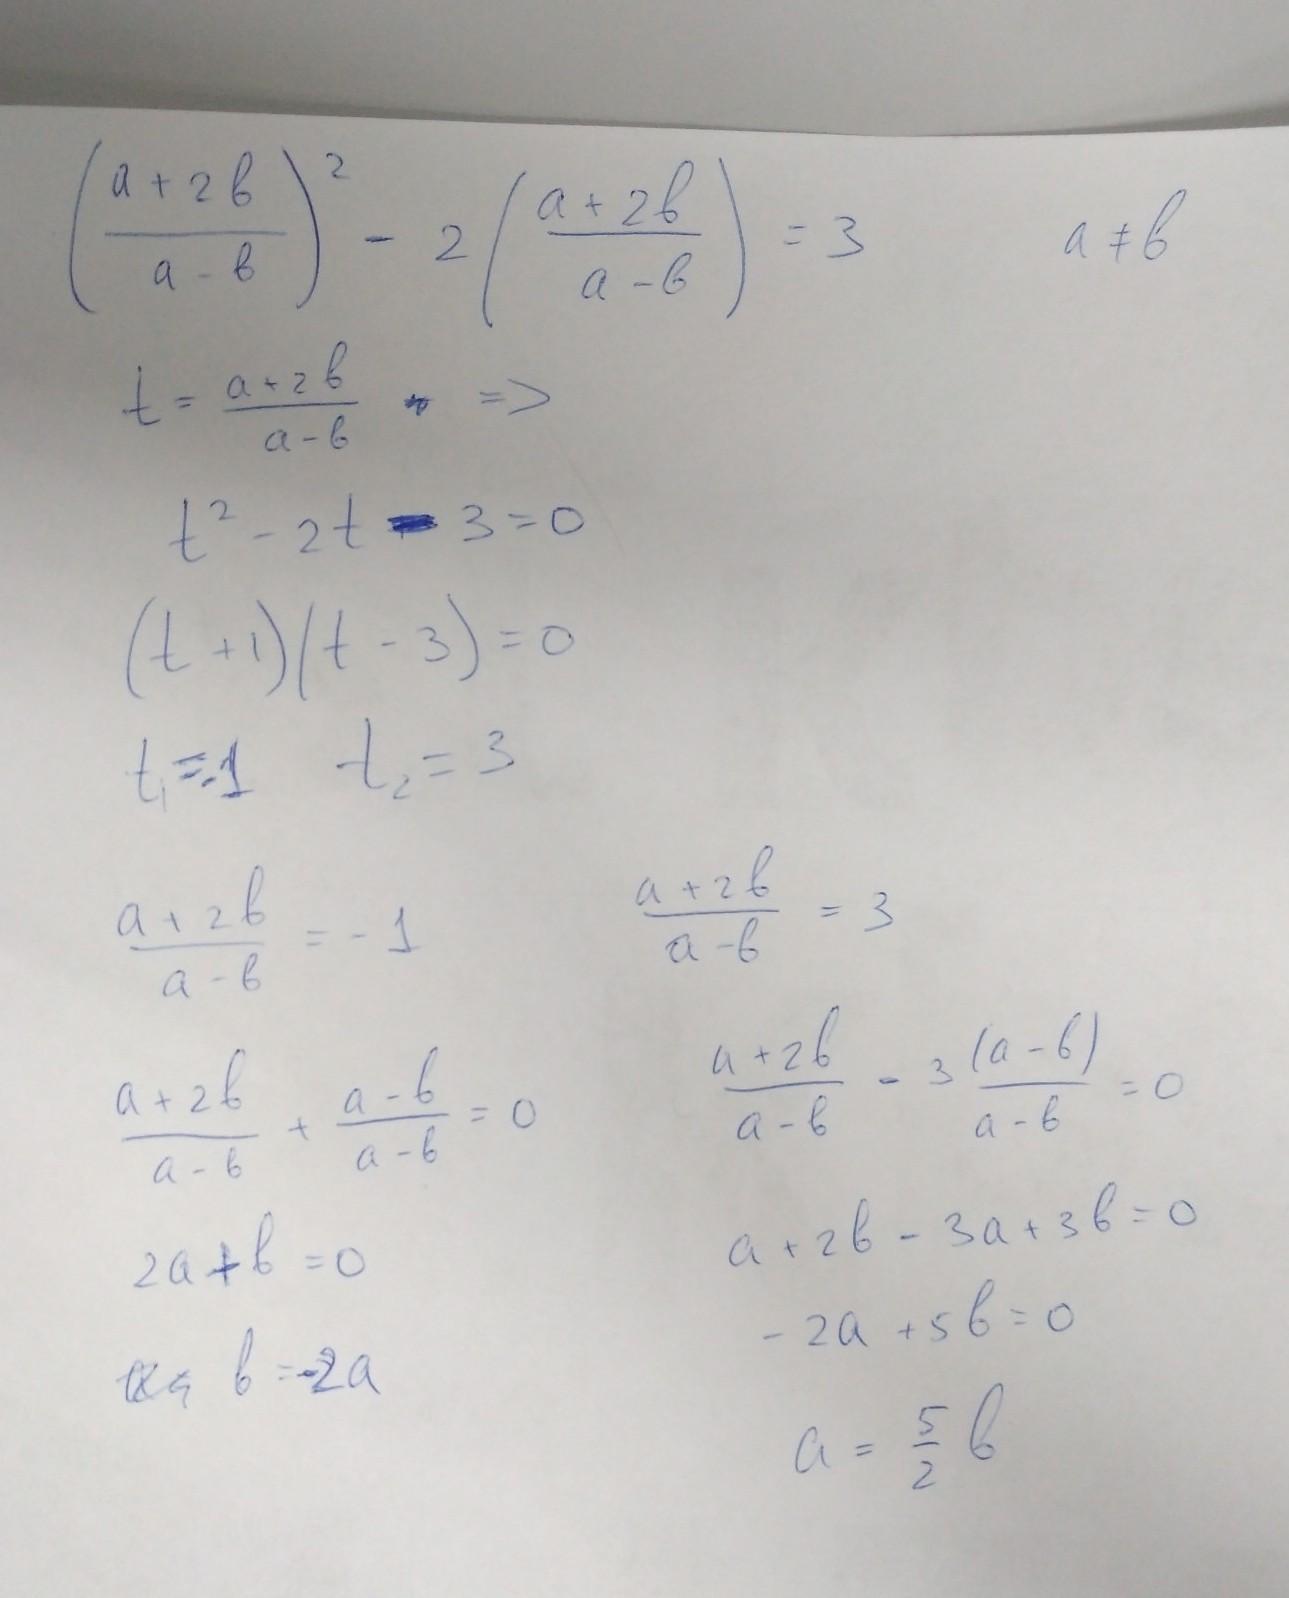 (a+2b / a-b)² - 2(a+2b / a-b) = 3 a ≠ b
t = a+2b / a-b =>
t² - 2t - 3 = 0
(t+1)(t-3) = 0
t₁ = -1 t₂ = 3
a+2b / a-b = -1
a+2b / a-b + a-b / a-b = 0
2a+b = 0
b = -2a
a+2b / a-b = 3
a+2b / a-b - 3 (a-b) / a-b = 0
a+2b - 3a + 3b = 0
-2a + 5b = 0
a = 5/2 b